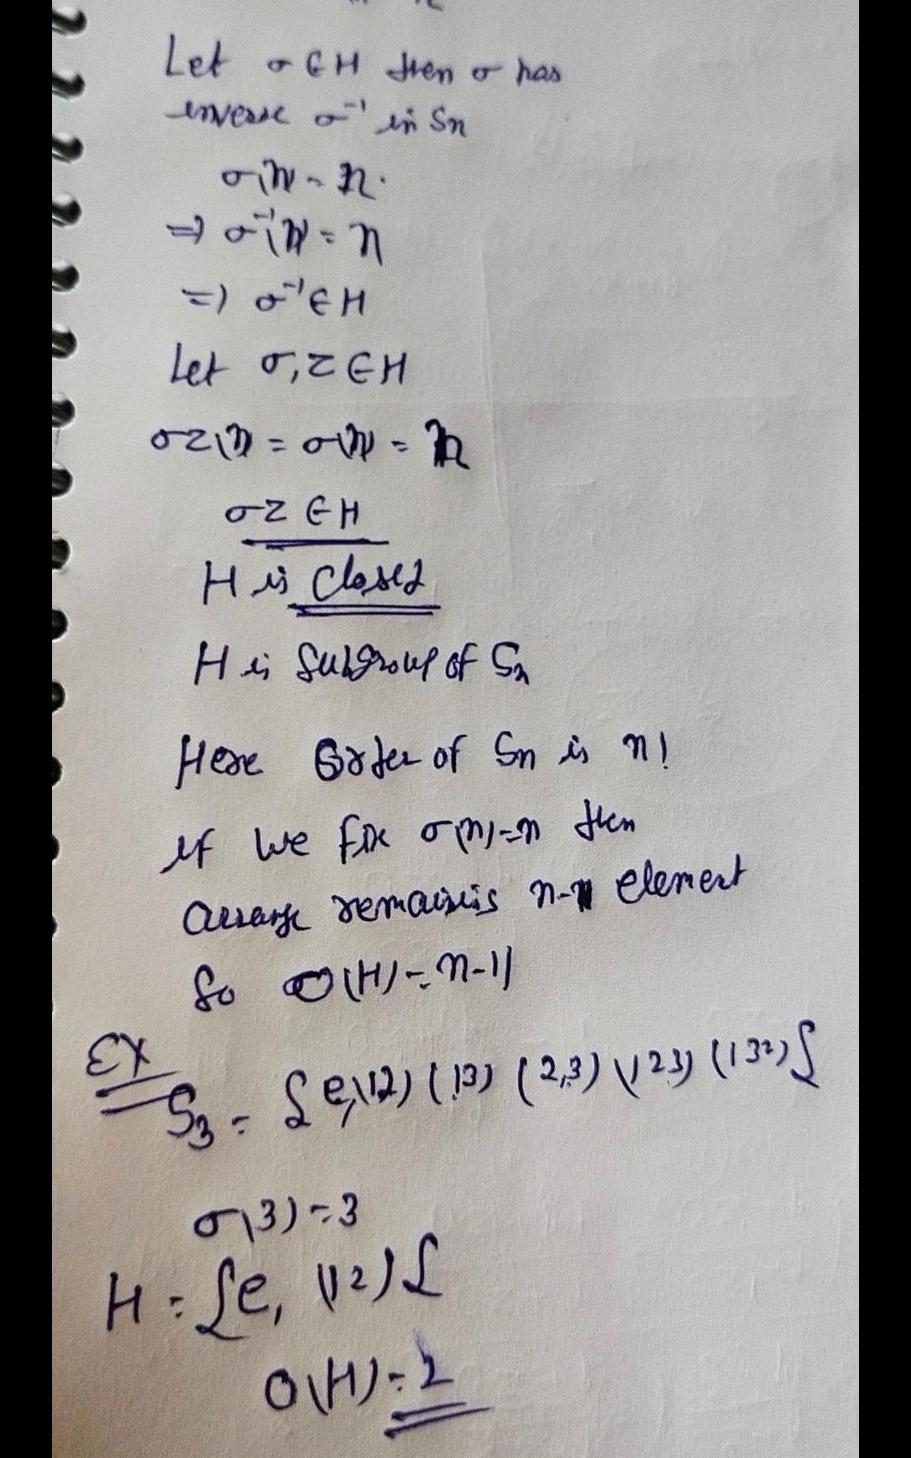 Let σ ∈ H then σ has
inverse σ⁻¹ in Sn
σ(n) = n.
⇒ σ⁻¹(n) = n
⇒ σ⁻¹ ∈ H
Let σ, τ ∈ H
στ(n) = σ(n) = n
στ ∈ H
H is Closed
H is Subgroup of Sn
Here Order of Sn is n!
if we fix σ(n) = n then
arrange remaining n-1 element
So O(H) = n-1!
Ex
S₃ = {e, (12) (13) (2,3) (123) (132)}
σ(3) = 3
H = {e, (12)}
O(H) = 2